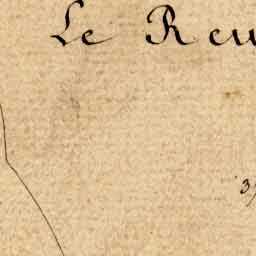 Le Reu